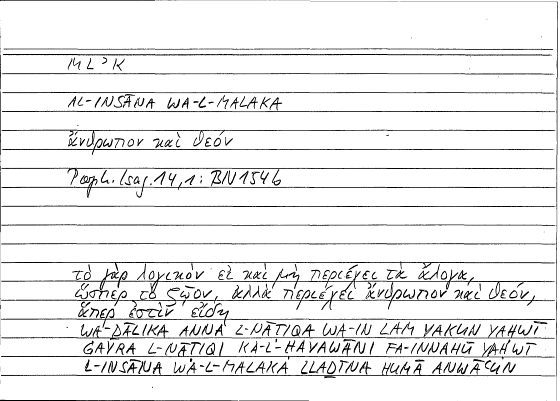 MLʾK
AL-INSĀNA WA-L-MALAKA
ἄνθρωπον καὶ θεόν
Porph. Isag. 14,1: BN 154b
τὸ γὰρ λογικόν εἰ καὶ μὴ περιέχει τὰ ἄλογα,
ὥσπερ τὸ ζῷον, ἀλλὰ περιέχει ἄνθρωπον καὶ θεόν,
ἅπερ ἐστὶν εἴδη
WA-ḎĀLIKA ANNA L-NĀṬIQA WA-IN LAM YAKUN YAḤWĪ
ĠAYRA L-NĀṬIQI KA-L-ḤAYAWĀNI FA-INNAHŪ YAḤWĪ
L-INSĀNA WA-L-MALAKA LLAḎĪNA HUMĀ ANWĀʿUN